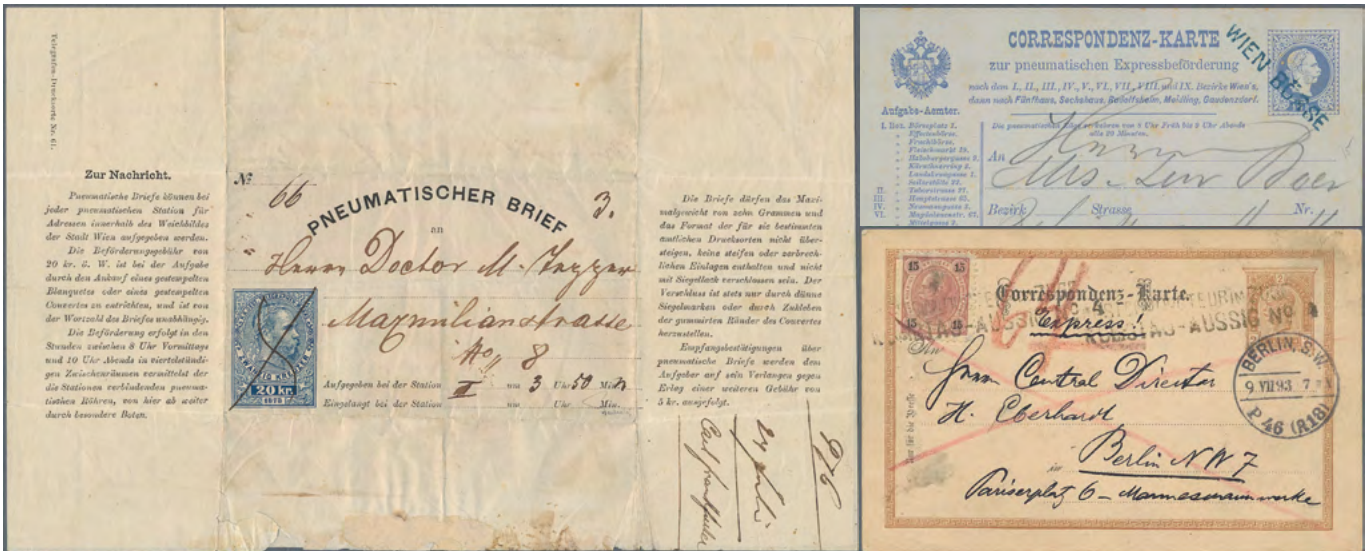 Telegrafen-Drucksorte Nr. 61.
Zur Nachricht.
Pneumatische Briefe können bei
jeder pneumatischen Station für
Adressen innerhalb des Weichbildes
der Stadt Wien aufgegeben werden.
Die Beförderungsgebühr von
20 kr. ö. W. ist bei der Aufgabe
durch den Ankauf eines gestempelten
Blanquetes oder eines gestempelten
Couvertes zu entrichten, und ist von
der Wortzahl des Briefes unabhängig.
Die Beförderung erfolgt in den
Stunden zwischen 8 Uhr Vormittags
und 10 Uhr Abends in viertelstündi-
gen Zwischenräumen vermittelst der
die Stationen verbindenden pneuma-
tischen Röhren, von hier ab weiter
durch besondere Boten.
Nº 66
3.
PNEUMATISCHER BRIEF
an
Herrn Doctor M.
Maxmilianstrasse
No 8
20 kr.
1875
Aufgegeben bei der Station II um 3 Uhr 50 Min.
Eingelangt bei der Station um Uhr Min.
Die Briefe dürfen das Maxi-
malgewicht von zehn Grammen und
das Format der für sie bestimmten
amtlichen Drucksorten nicht über-
steigen, keine steifen oder zerbrech-
lichen Einlagen enthalten und nicht
mit Siegellack verschlossen sein. Der
Verschluss ist stets nur durch dünne
Siegelmarken oder durch Zukleben
der gummirten Ränder des Couvertes
herzustellen.
Empfangsbestätigungen über
pneumatische Briefe werden dem
Aufgeber auf sein Verlangen gegen
Erlag einer weiteren Gebühr von
5 kr. ausgefolgt.
976
27 Juli
Carl
CORRESPONDENZ-KARTE
zur pneumatischen Expressbeförderung
nach dem I., II., III., IV., V., VI., VII., VIII. und IX. Bezirke Wien's,
dann nach Fünfhaus, Sechshaus, Rudolfsheim, Meidling, Gaudenzdorf.
WIEN BÖRSE
Aufgabe-Aemter.
Die pneumatischen Züge verkehren von 8 Uhr Früh bis 9 Uhr Abends
alle 20 Minuten.
I. Bez. Börseplatz 1.
Effectenbörse.
Fruchtbörse.
Fleischmarkt 19.
Habsburgergasse 9.
Kärnthnerring 3.
Landskrongasse 1.
II.
III. Hauptstrasse 65.
IV.
VI. Magdalenenstr. 67.
An
Bezirk Strasse Nr.
15 15
15 15
Correspondenz-Karte.
Express!
KOMOTAU-AUSSIG Nº 4
An
Herrn Central Director
H. Eberhardt
in Berlin NW 7
Pariserplatz 6 – Mannesmannwerke
Nur für die Adresse
BERLIN, S.W.
9 VII 93 7
P. 46 (R18)
2